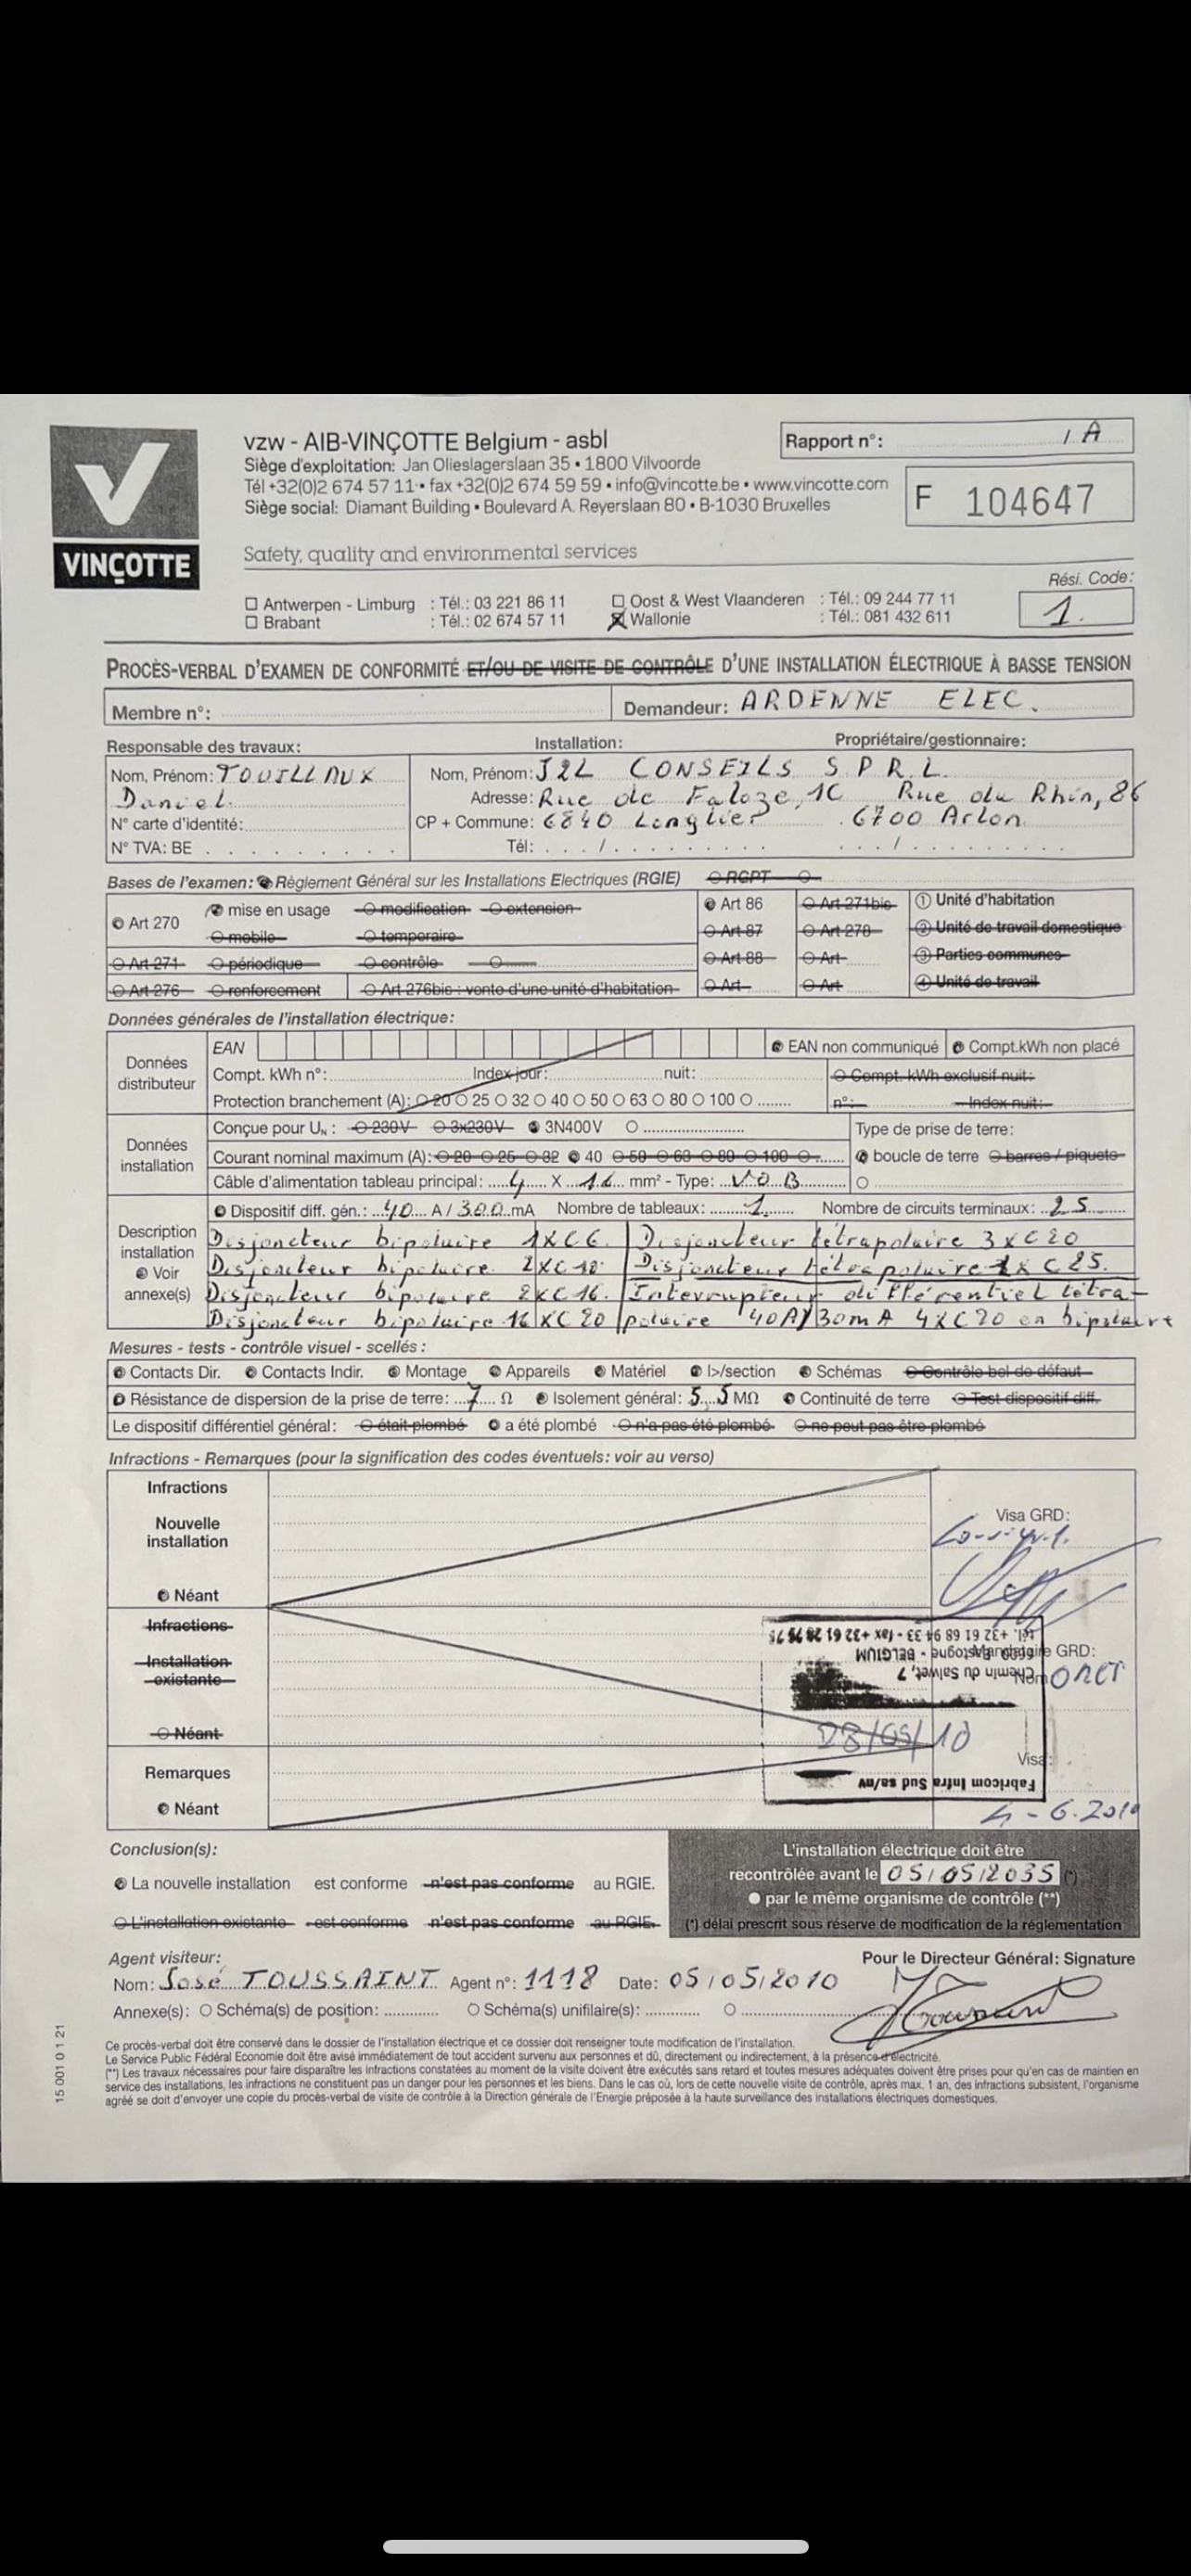 VINÇOTTE
vzw - AIB-VINÇOTTE Belgium - asbl
Siège d'exploitation: Jan Olieslagerslaan 35 • 1800 Vilvoorde
Tél +32(0)2 674 57 11 • fax +32(0)2 674 59 59 • info@vincotte.be • www.vincotte.com
Siège social: Diamant Building • Boulevard A. Reyerslaan 80 • B-1030 Bruxelles
Safety, quality and environmental services
Rapport n°: 1A
F 104647
Rési. Code:
1.
☐ Antwerpen - Limburg : Tél.: 03 221 86 11 ☐ Oost & West Vlaanderen : Tél.: 09 244 77 11
☐ Brabant : Tél.: 02 674 57 11 ☒ Wallonie : Tél.: 081 432 611
PROCÈS-VERBAL D'EXAMEN DE CONFORMITÉ ET/OU DE VISITE DE CONTRÔLE D'UNE INSTALLATION ÉLECTRIQUE À BASSE TENSION
Membre n°: Demandeur: ARDENNE ELEC.
Responsable des travaux: Installation: Propriétaire/gestionnaire:
Nom, Prénom: TOUILLAUX Nom, Prénom: J2L CONSEILS S P R.L.
Daniel. Adresse: Rue de Faloze, 1C Rue du Rhin, 86
N° carte d'identité: CP + Commune: 6840 Longlier 6700 Arlon
N° TVA: BE Tél: . . . / . . . . . . . . . . . / . . . . . . . .
Bases de l'examen: Règlement Général sur les Installations Electriques (RGIE) RGPT
Art 270 mise en usage modification extension Art 86 Art 271bis ① Unité d'habitation
mobile temporaire Art 87 Art 278 ② Unité de travail domestique
Art 271 périodique contrôle Art 88 Art ③ Parties communes
Art 276 renforcement Art 276bis : vente d'une unité d'habitation Art Art ④ Unité de travail
Données générales de l'installation électrique:
Données distributeur
EAN EAN non communiqué Compt.kWh non placé
Compt. kWh n°: Index jour: nuit: Compt. kWh exclusif nuit:
Protection branchement (A): 20 25 32 40 50 63 80 100 n°: Index nuit:
Données installation
Conçue pour UN : 230V 3x230V 3N400V Type de prise de terre:
Courant nominal maximum (A): 20 25 32 40 50 63 80 100 boucle de terre barres / piquets
Câble d'alimentation tableau principal: 4 X 16 mm² - Type: VOB
Description installation
Voir annexe(s)
Dispositif diff. gén.: 40 A / 300 mA Nombre de tableaux: 1 Nombre de circuits terminaux: 25
Disjoncteur bipolaire 1XC6. Disjoncteur tétrapolaire 3xC20
Disjoncteur bipolaire 2XC10. Disjoncteur tétrapolaire 1x C25.
Disjoncteur bipolaire 2XC16. Interrupteur différentiel tétra-
Disjoncteur bipolaire 16XC20 polaire 40A/30mA 4XC20 en bipolaire
Mesures - tests - contrôle visuel - scellés :
Contacts Dir. Contacts Indir. Montage Appareils Matériel I>/section Schémas Contrôle bcl de défaut
Résistance de dispersion de la prise de terre: 7 Ω Isolement général: 5,5 MΩ Continuité de terre Test dispositif diff.
Le dispositif différentiel général: était plombé a été plombé n'a pas été plombé ne peut pas être plombé
Infractions - Remarques (pour la signification des codes éventuels: voir au verso)
Infractions
Nouvelle installation
Néant
Visa GRD:
Infractions
Installation existante
Néant
Mandataire GRD:
Nom
Visa:
Fabricom Infra Sud sa/nv
28/05/10
Chemin du Salwet, 7
6600 Bastogne - BELGIUM
tél. +32 61 68 94 33 - fax +32 61 28 75 75
4-6.2010
Remarques
Néant
Conclusion(s):
La nouvelle installation est conforme n'est pas conforme au RGIE.
L'installation existante est conforme n'est pas conforme au RGIE.
L'installation électrique doit être
recontrôlée avant le 05/05/2035 (*)
par le même organisme de contrôle (**)
(*) délai prescrit sous réserve de modification de la réglementation
Agent visiteur: Pour le Directeur Général: Signature
Nom: José TOUSSAINT Agent n°: 1118 Date: 05/05/2010
Annexe(s): Schéma(s) de position: Schéma(s) unifilaire(s):
Ce procès-verbal doit être conservé dans le dossier de l'installation électrique et ce dossier doit renseigner toute modification de l'installation.
Le Service Public Fédéral Economie doit être avisé immédiatement de tout accident survenu aux personnes et dû, directement ou indirectement, à la présence d'électricité.
(**) Les travaux nécessaires pour faire disparaître les infractions constatées au moment de la visite doivent être exécutés sans retard et toutes mesures adéquates doivent être prises pour qu'en cas de maintien en
service des installations, les infractions ne constituent pas un danger pour les personnes et les biens. Dans le cas où, lors de cette nouvelle visite de contrôle, après max. 1 an, des infractions subsistent, l'organisme
agréé se doit d'envoyer une copie du procès-verbal de visite de contrôle à la Direction générale de l'Energie préposée à la haute surveillance des installations électriques domestiques.
15 001 0 1 21